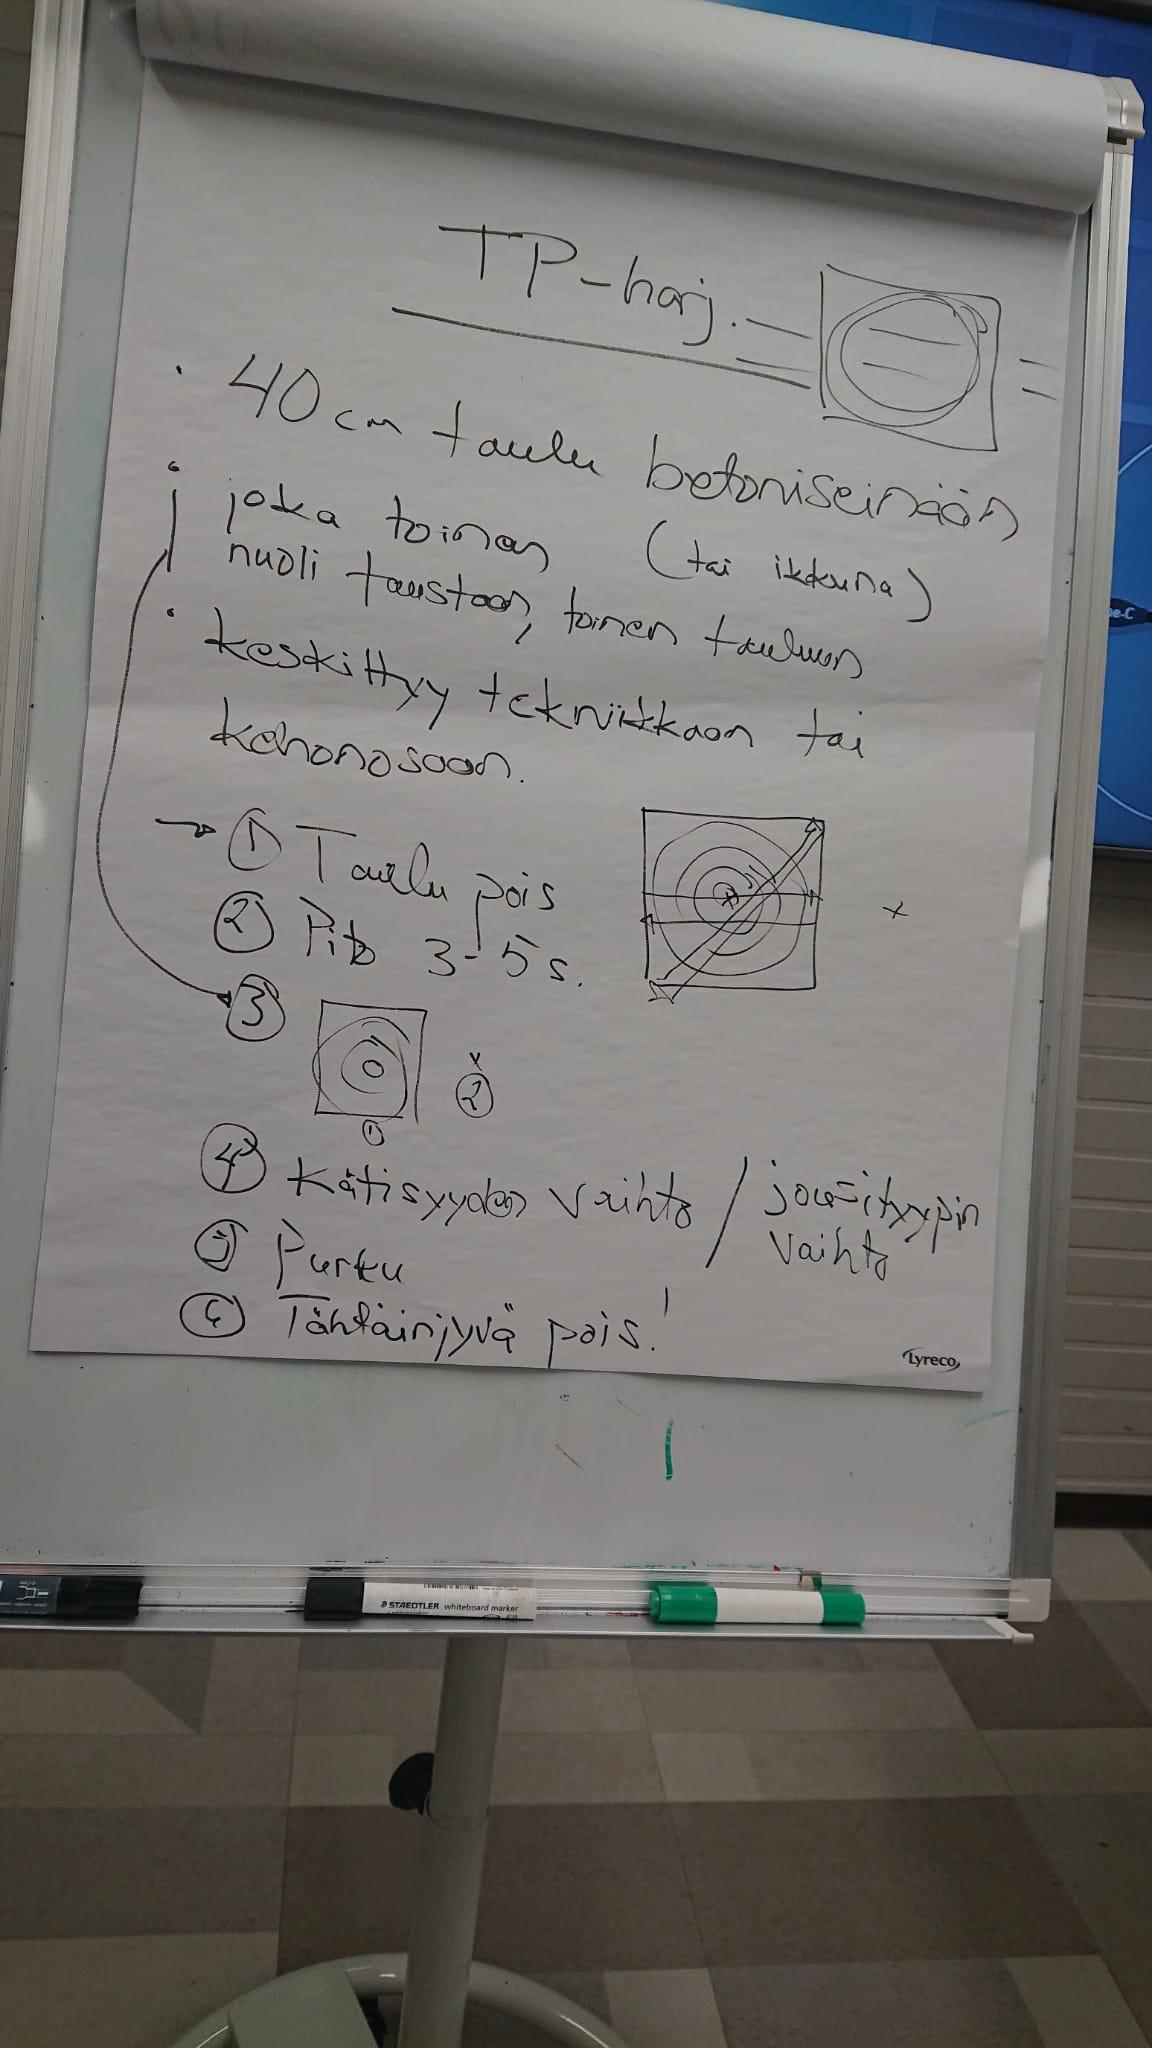 TP-harj.
• 40 cm taulu betoniseinään
(tai ikkuna)
• joka toinen
nuoli taustaan, toinen tauluun
• keskittyy tekniikkaan tai
kehonosaan.
→ ① Taulu pois
② Pito 3-5 s.
③
① ②
④ Kätisyyden vaihto / jousityypin
vaihto
⑤ Purku
⑥ Tähtäinjyvä pois!
Lyreco
e-C
STAEDTLER whiteboard marker